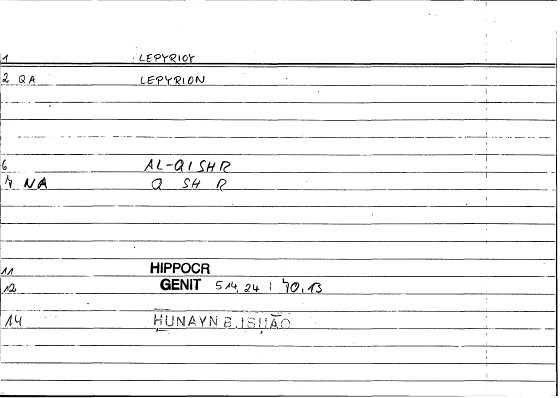 1 LEPYRIOY
2 QA LEPYRION
6 AL-QISHR
7 NA Q SH R
11 HIPPOCR
12 GENIT 514,24 | 70,13
14 HUNAYN B. ISḤĀQ